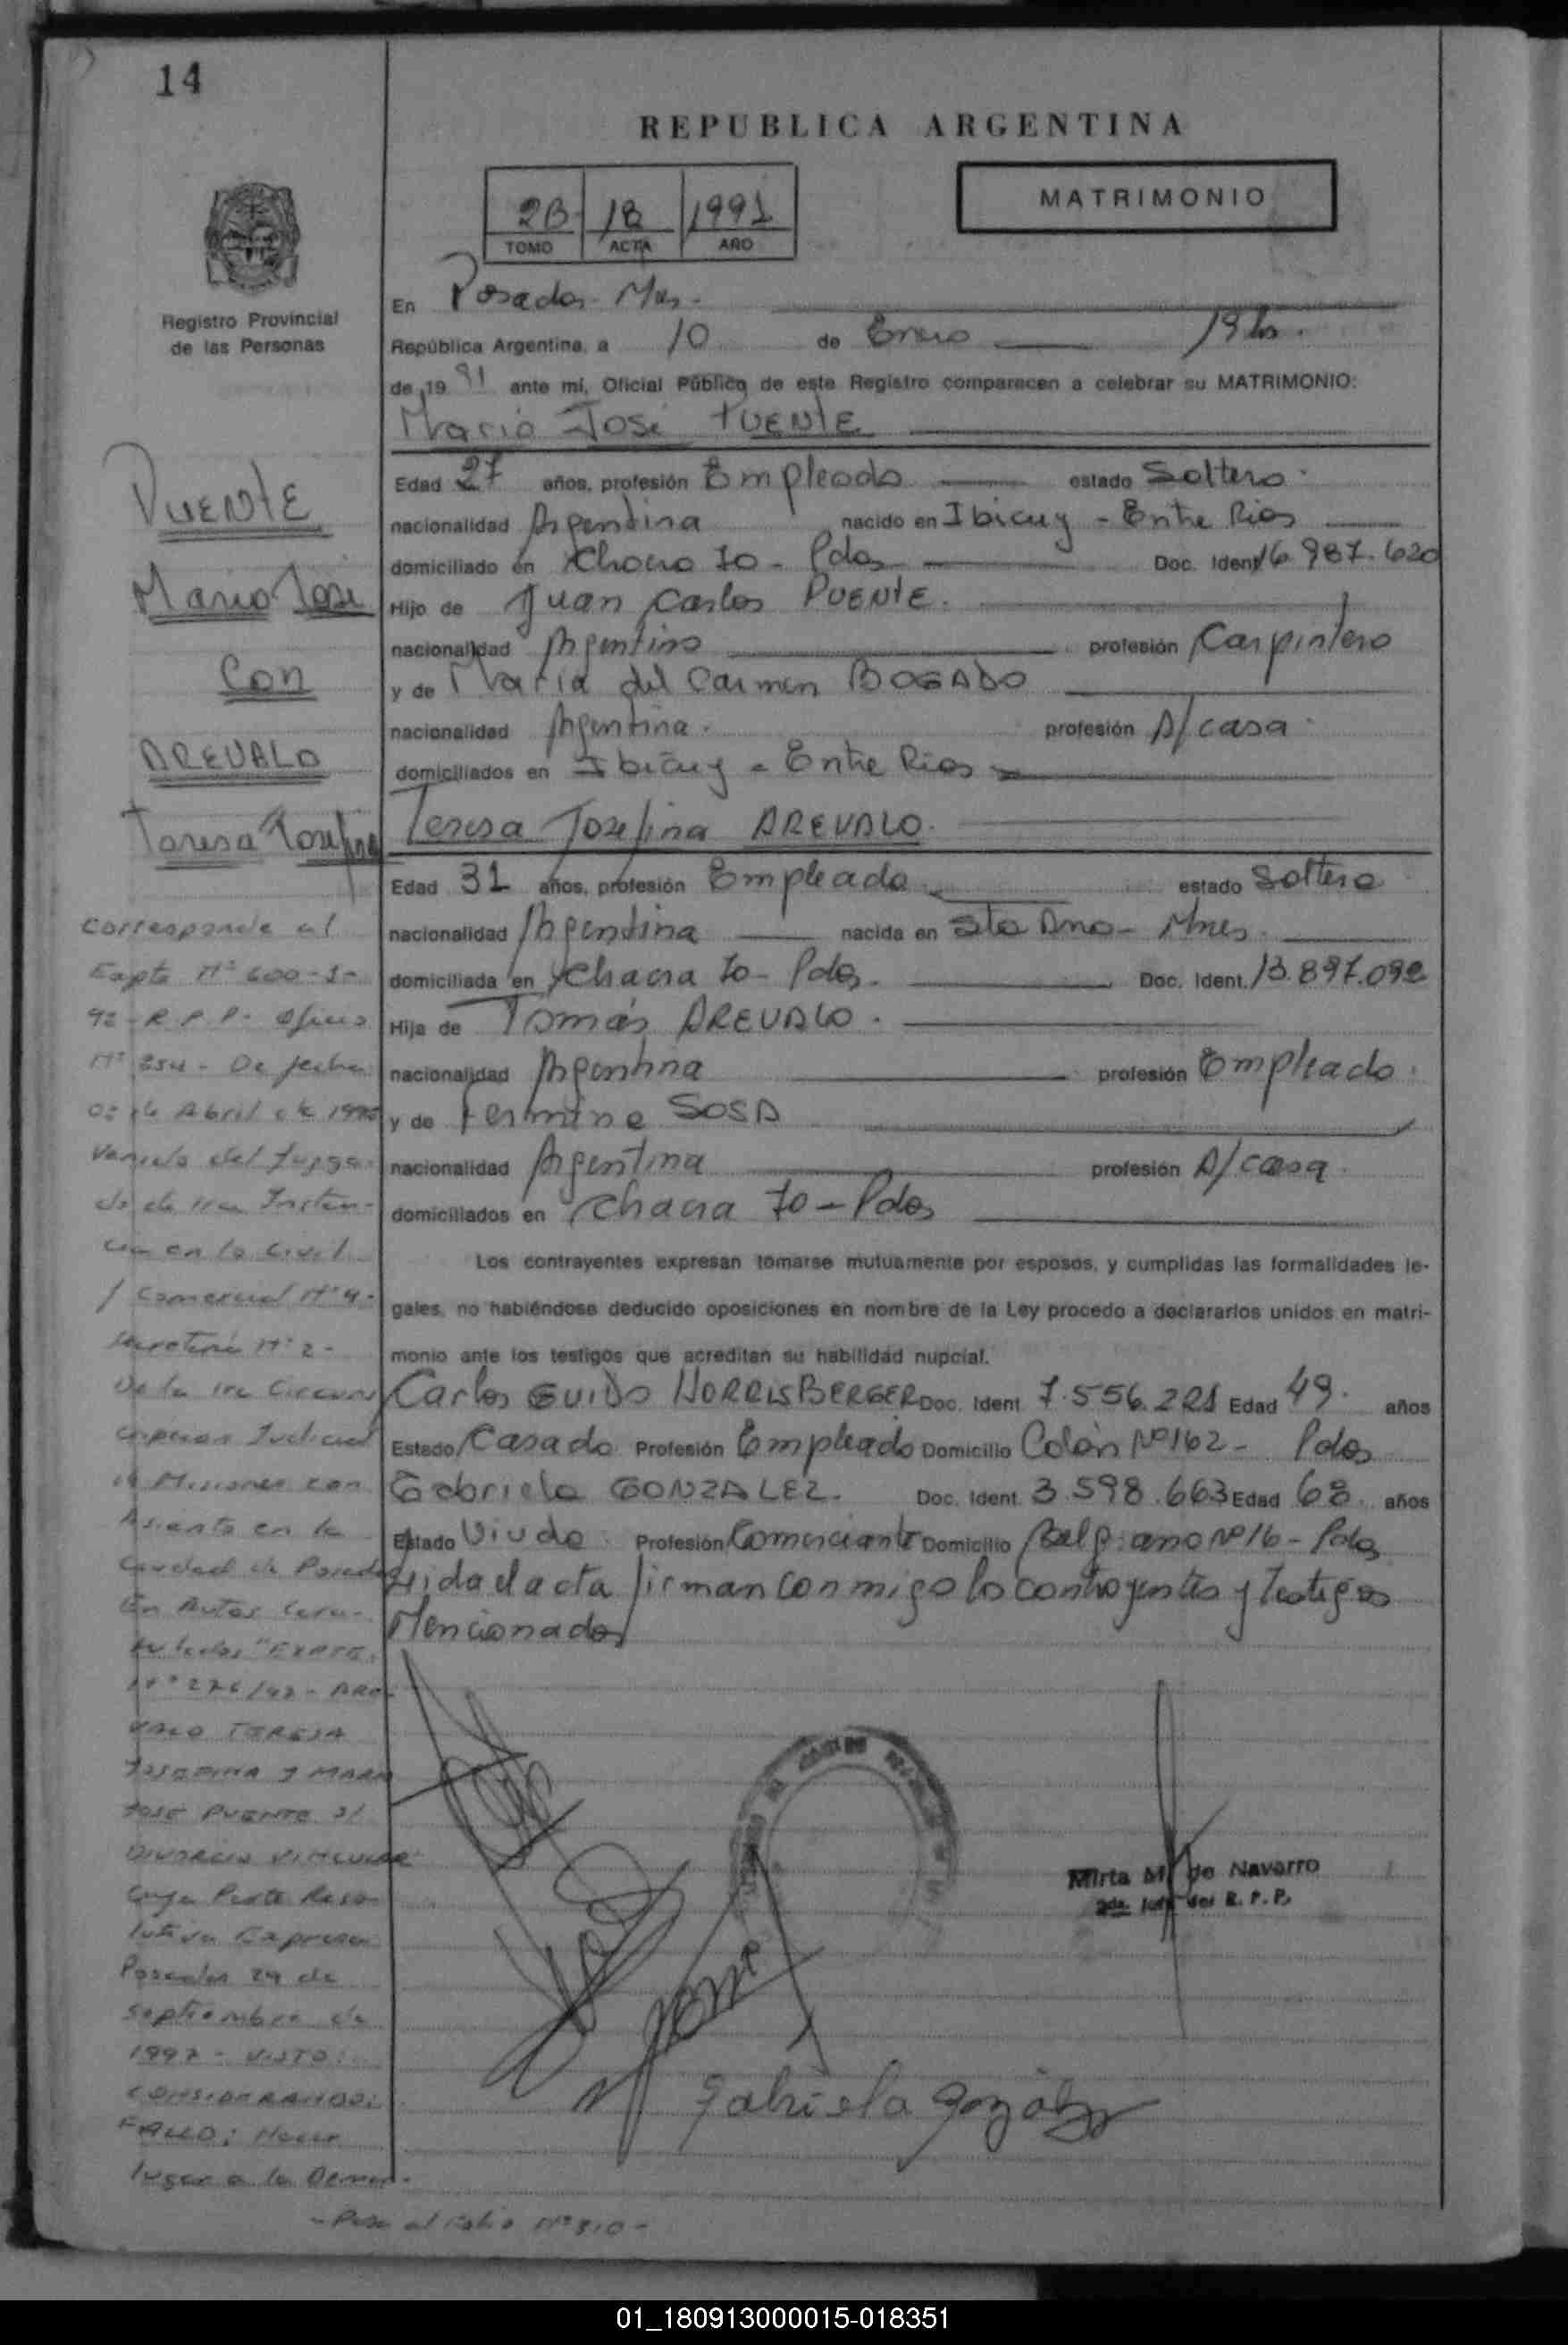 14
REPUBLICA ARGENTINA
MATRIMONIO
2B 18 1991
TOMO ACTA AÑO
Registro Provincial
de las Personas
En Posadas - Mnes.
República Argentina, a 10 de Enero 19 hs.
de 19 91 ante mí, Oficial Público de este Registro comparecen a celebrar su MATRIMONIO:
Mario José PUENTE
Edad 27 años, profesión Empleado estado Soltero.
nacionalidad Argentina nacido en Ibicuy - Entre Rios
domiciliado en Chacra 70 - Pdas Doc. Ident. 16.987.620
Hijo de Juan Carlos PUENTE.
nacionalidad Argentino profesión Carpintero
y de Maria del Carmen BOGADO
nacionalidad Argentina. profesión A/casa
domiciliados en Ibicuy - Entre Rios
Teresa Josefina AREVALO.
Edad 31 años, profesión Empleada estado Soltera
nacionalidad Argentina nacida en Sta Ana - Mnes.
domiciliada en Chacra 70 - Pdas. Doc. Ident. 13.897.092
Hija de Tomás AREVALO.
nacionalidad Argentina profesión Empleado.
y de Fermina SOSA
nacionalidad Argentina profesión A/casa.
domiciliados en Chacra 70 - Pdas
Los contrayentes expresan tomarse mutuamente por esposos, y cumplidas las formalidades le-
gales, no habiéndose deducido oposiciones en nombre de la Ley procedo a declararlos unidos en matri-
monio ante los testigos que acreditan su habilidad nupcial.
Carlos GUIDO HORRISBERGER Doc. Ident. 7.556.221 Edad 49. años
Estado Casado Profesión Empleado Domicilio Colón Nº 162 - Pdas
Gabriela GONZALEZ. Doc. Ident. 3.598.663 Edad 68. años
Estado Viuda. Profesión Comerciante Domicilio Belgrano Nº 16 - Pdas
Leida el acta firman conmigo los contrayentes y testigos
Mencionados
Mirta M. de Navarro
2da. Jefe del R. P. P.
Gabriela González
PUENTE
Mario José
Con
AREVALO
Teresa Josefina
Corresponde al
Expte Nº 600-J-
92 - R.P.P. Oficio
Nº 254 - De fecha
de Abril de
Venido del Juzga-
do de 1ra Instan-
cia en lo Civil
y Comercial Nº 4 -
Secretaria Nº 2 -
De la 1ra Circuns
cripcion Judicial
de Misiones con
Asiento en la
Ciudad de Posadas
En Autos Cara-
tulados "EXPTE.
Nº 276/92 - ARE-
VALO TERESA
JOSEFINA Y MARIO
JOSE PUENTE S/
DIVORCIO VINCULAR
Cuya Parte Reso-
lutiva Expresa
Posadas 29 de
septiembre de
1997 - VISTO:
CONSIDERANDO:
FALLO: Hacer
lugar a la Deman-
- Pasa al Folio Nº 310 -
01_180913000015-018351